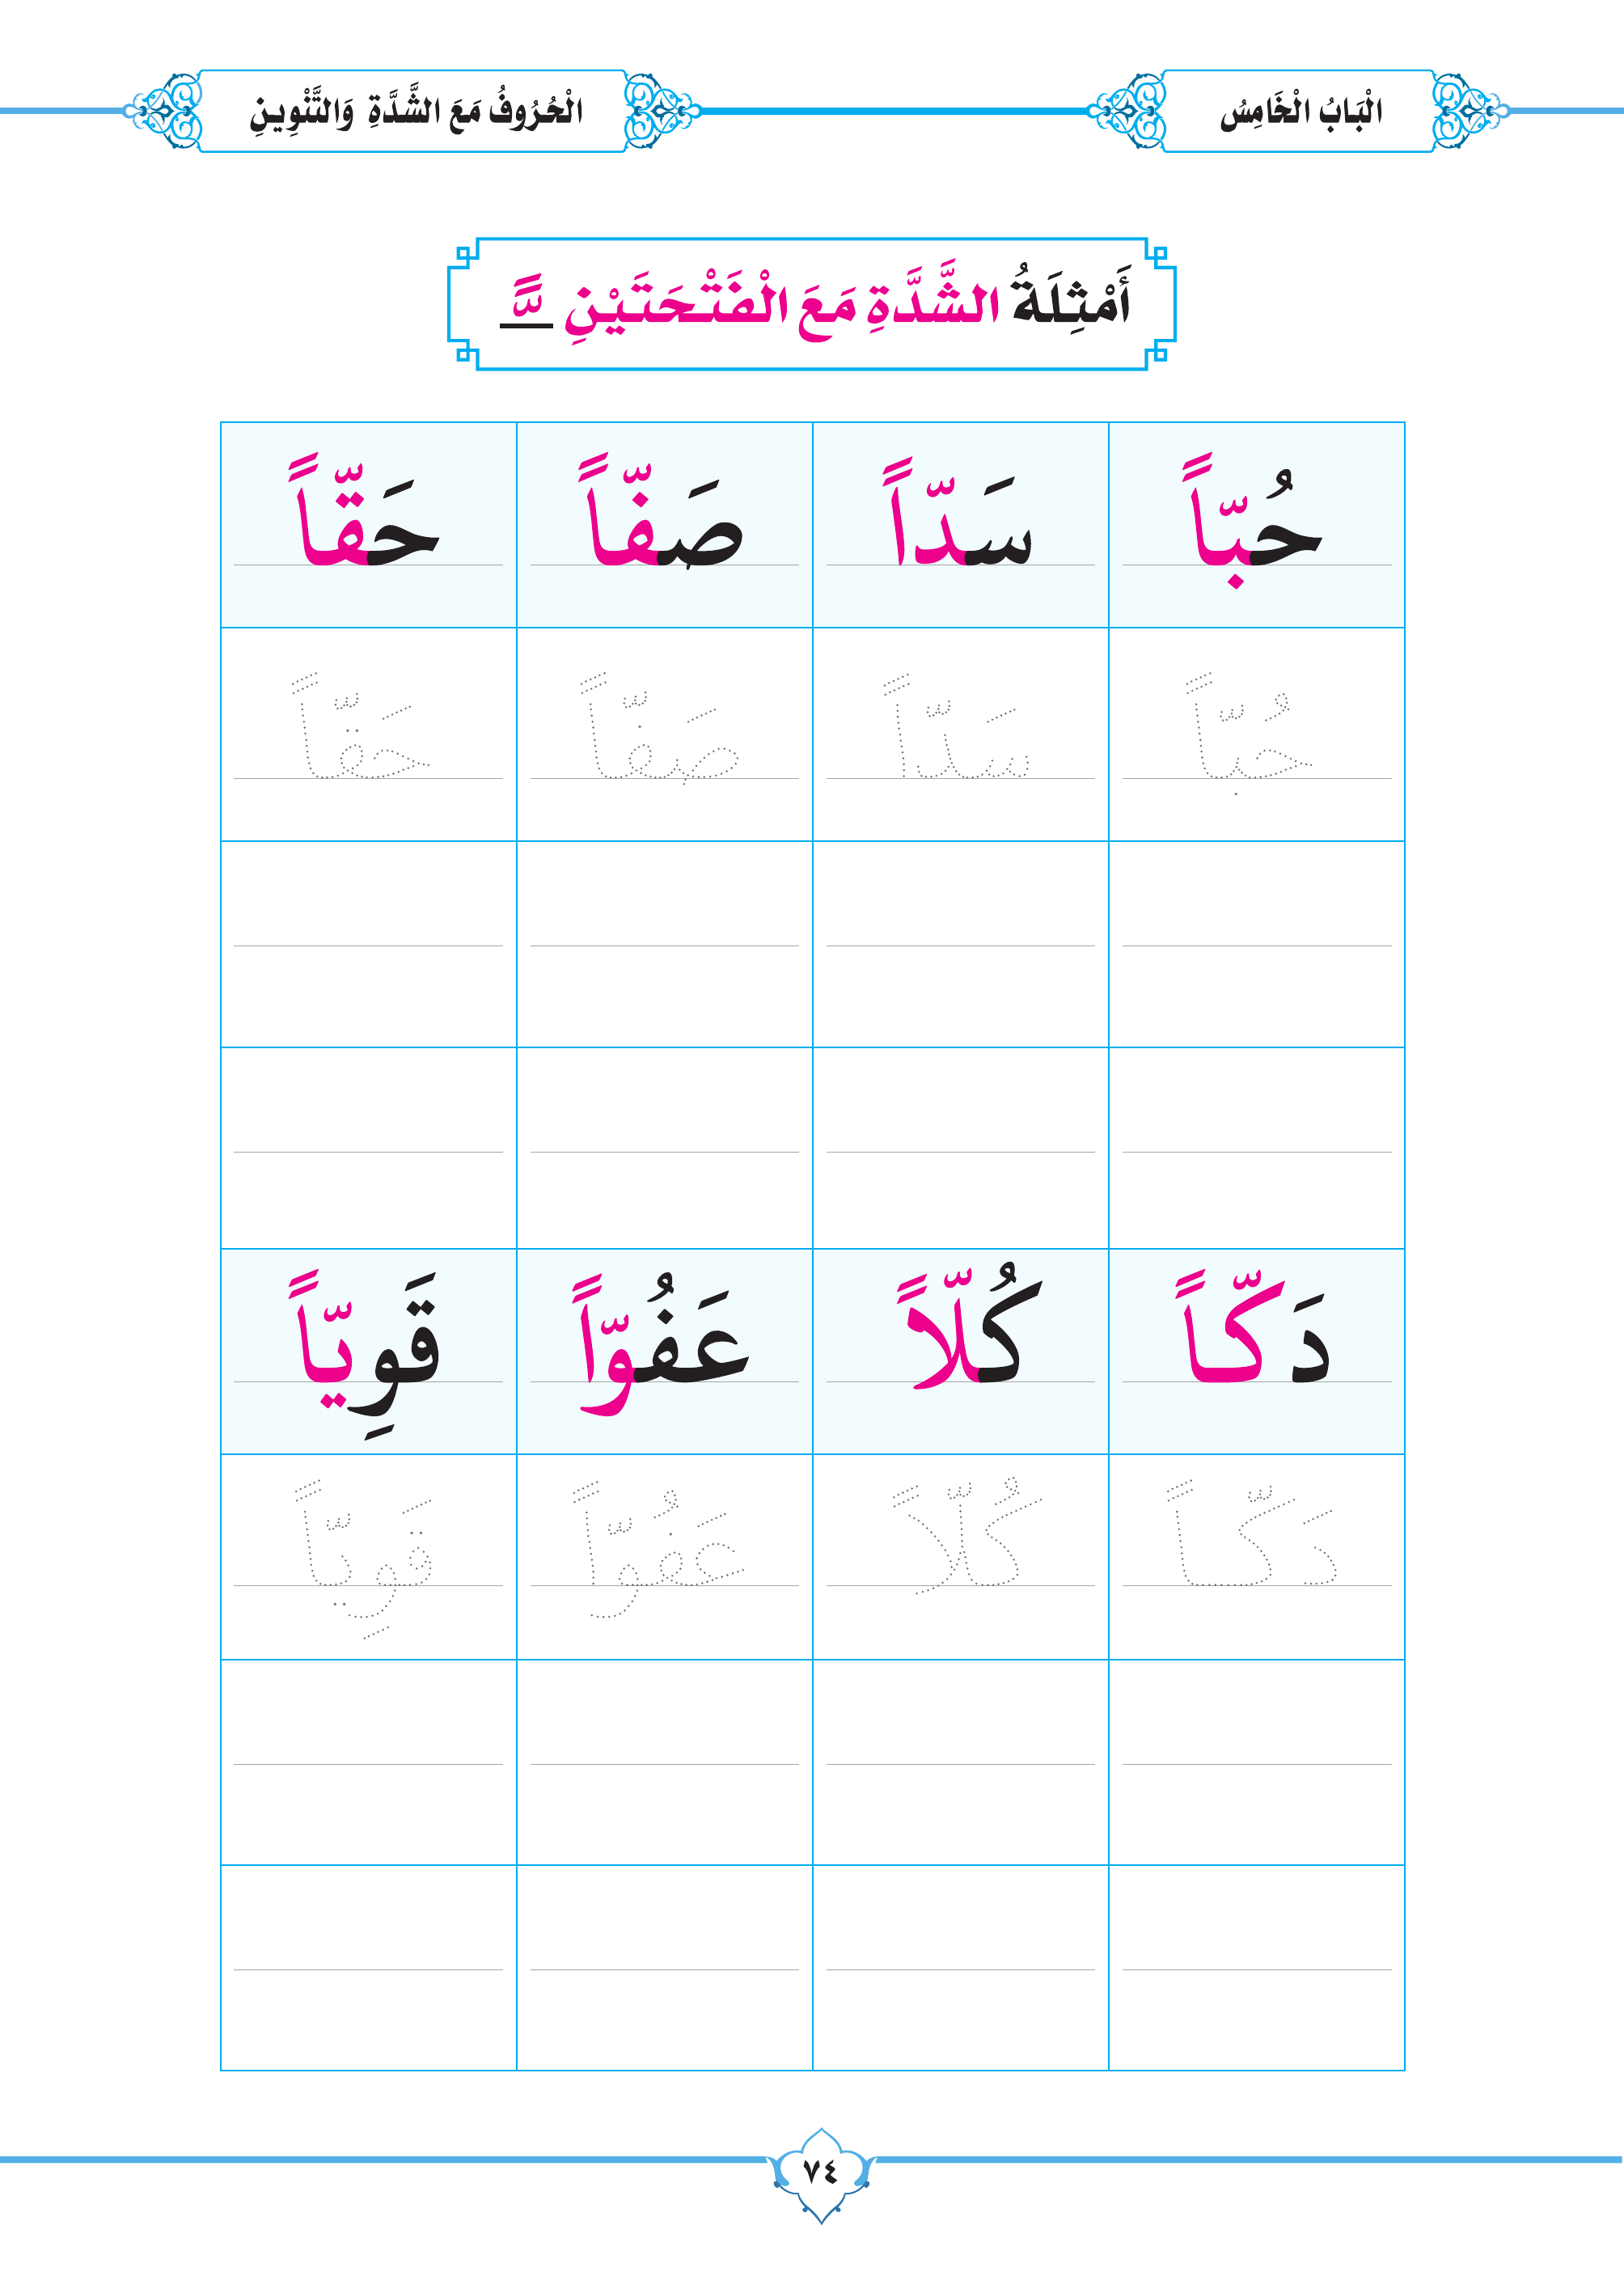 الْبَابُ الْخَامِسُ
الْحُرُوفُ مَعَ الشَّدَّةِ وَالتَّنْوِينِ
أَمْثِلَةُ الشَّدَّةِ مَعَ الْفَتْحَتَيْنِ ــًّـ
حُبّاً سَدّاً صَفّاً حَقّاً
حُبّاً سَدّاً صَفّاً حَقّاً
دَكّاً كُلّاً عَفُوّاً قَوِيّاً
دَكّاً كُلّاً عَفُوّاً قَوِيّاً
٧٤